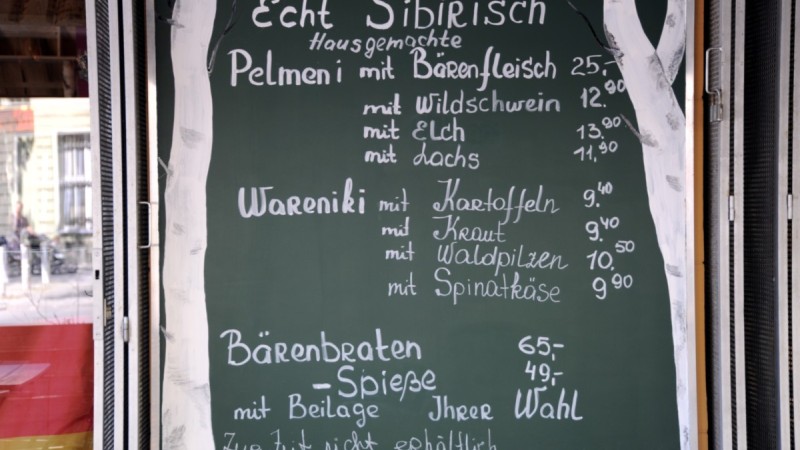 Echt Sibirisch
Hausgemachte
Pelmeni mit Bärenfleisch 25,-
mit Wildschwein 12.90
mit Elch 13.90
mit Lachs 11,90
Wareniki mit Kartoffeln 9.40
mit Kraut 9.40
mit Waldpilzen 10.50
mit Spinatkäse 9.90
Bärenbraten 65,-
-Spieße 49,-
mit Beilage Ihrer Wahl
Zur Zeit nicht erhältlich